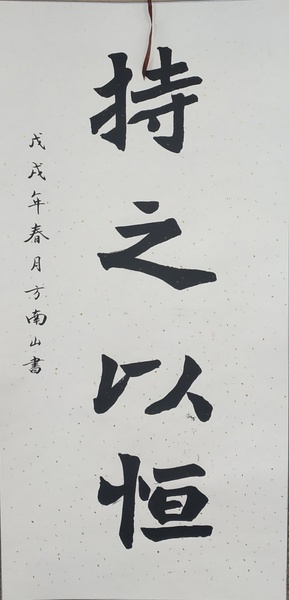 持之以恒
戊戌年春月方南山書